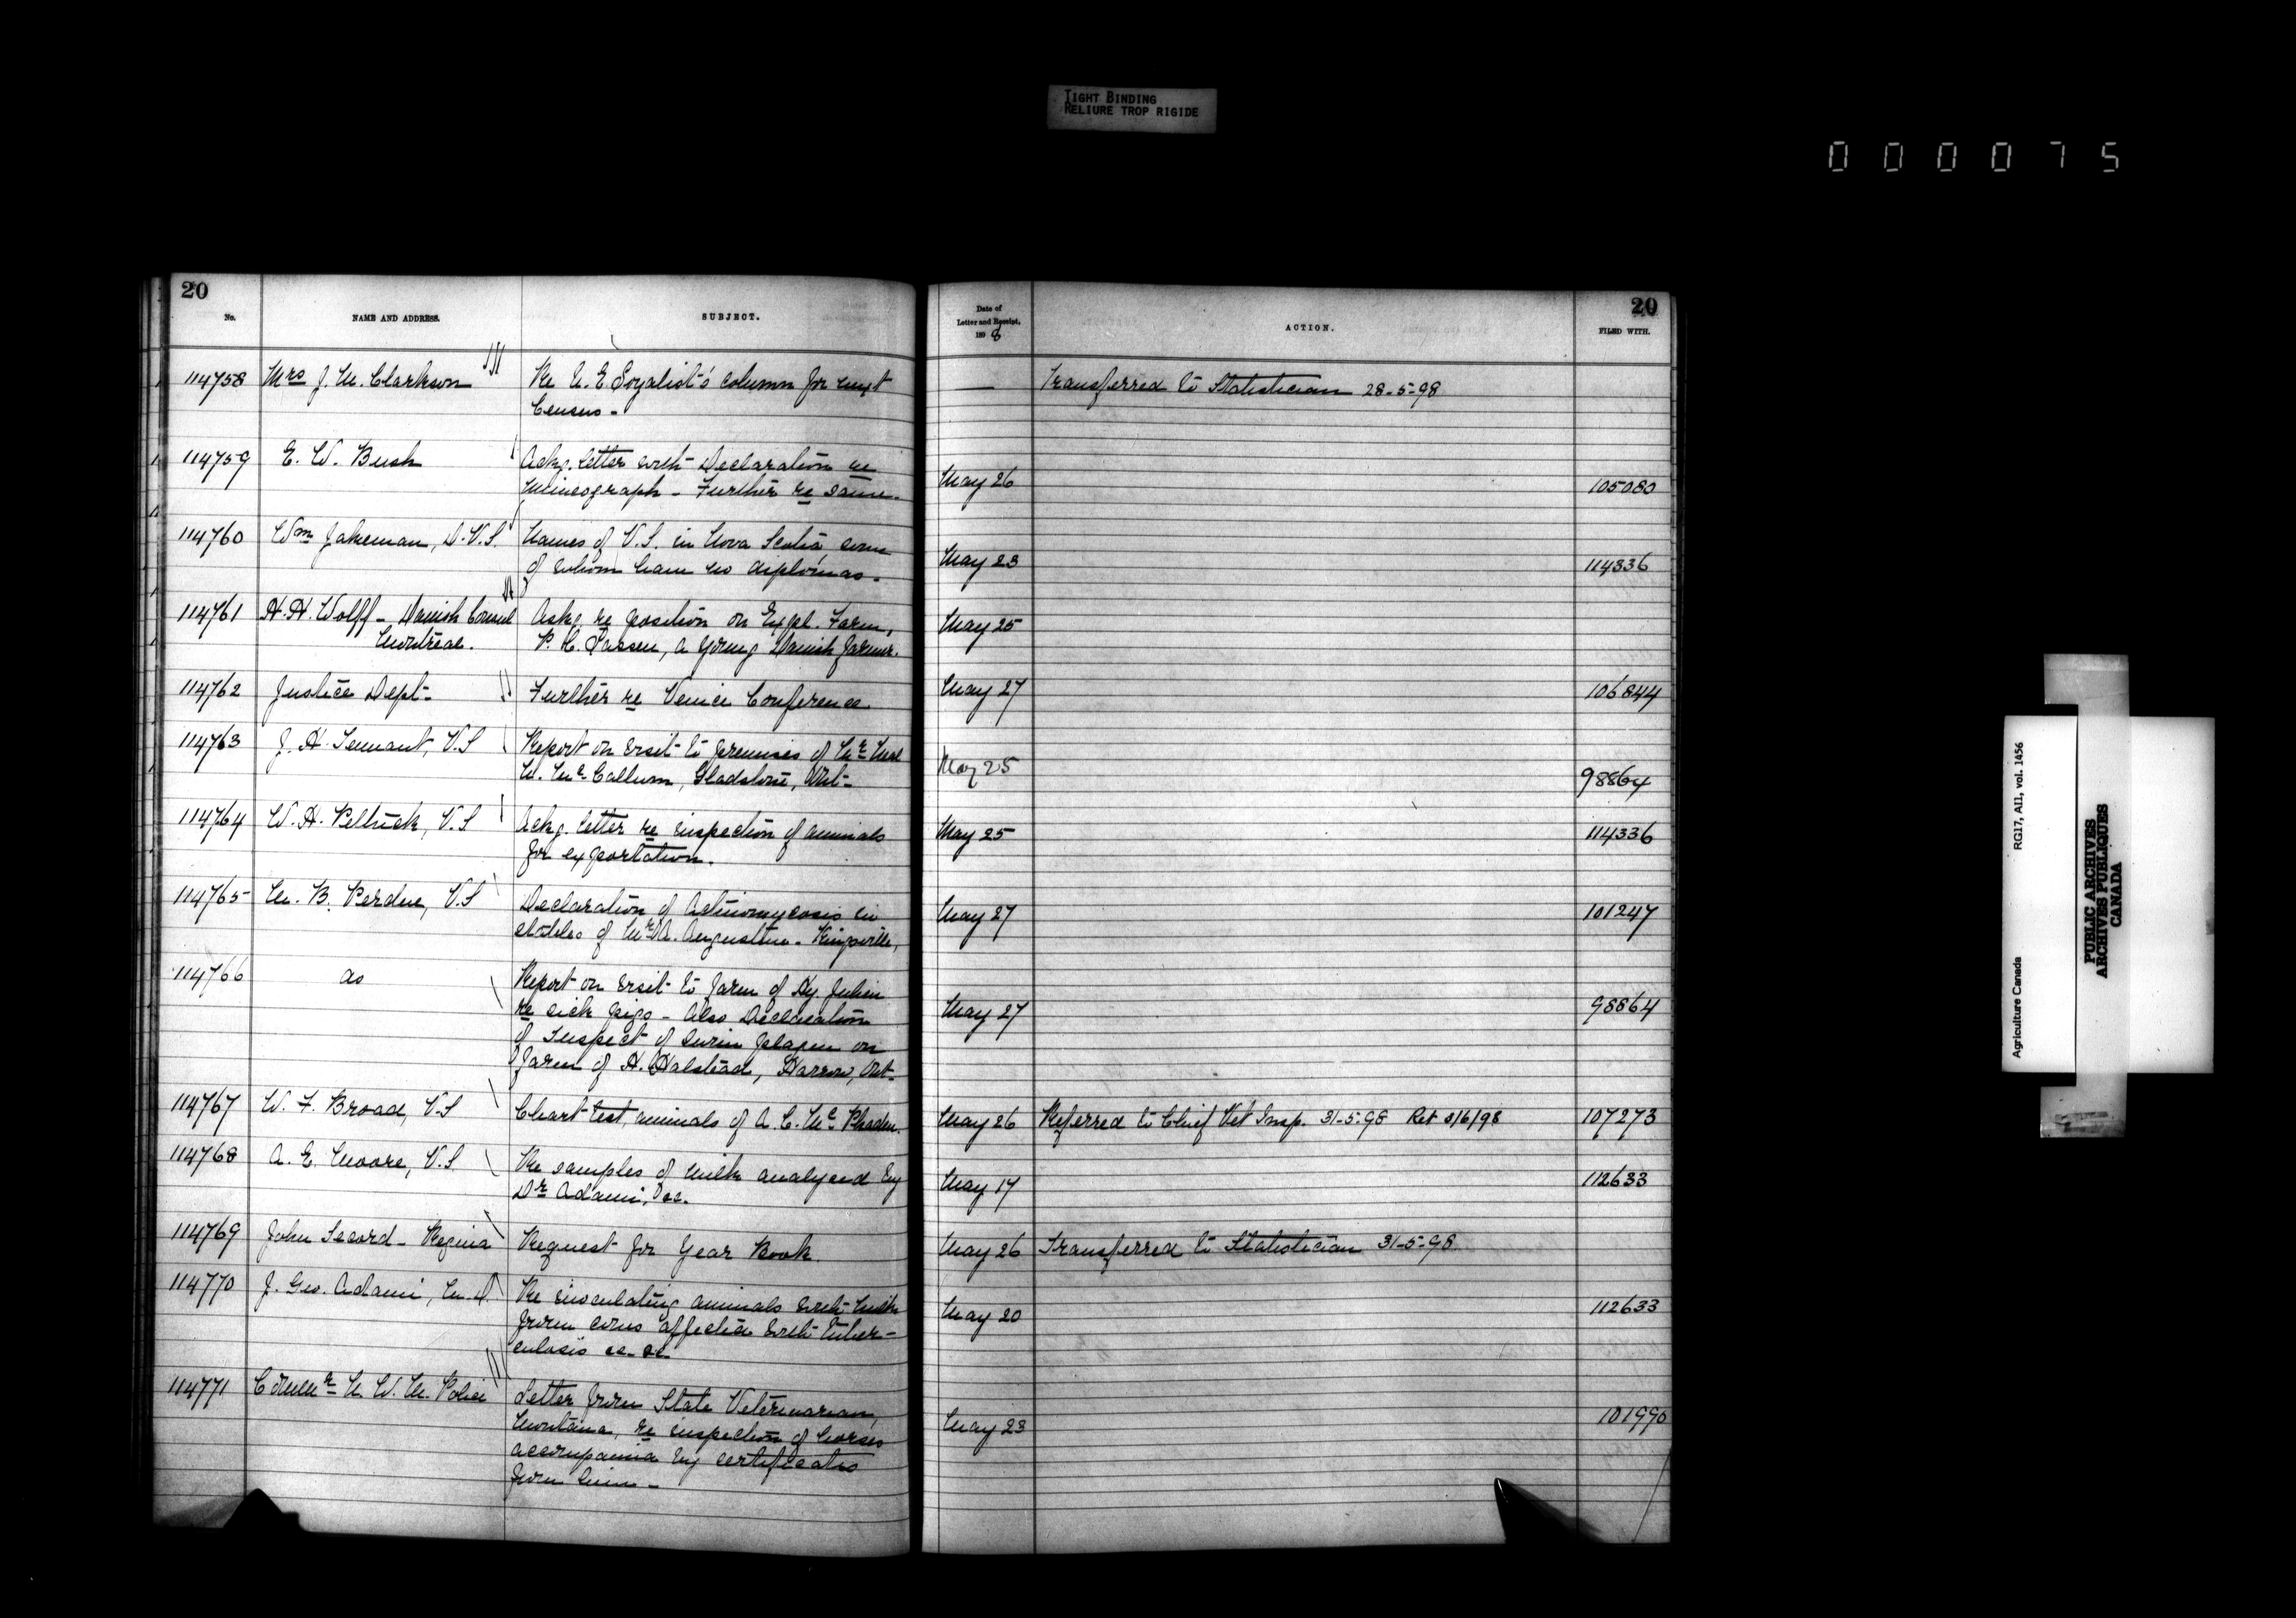 TIGHT BINDING
RELIURE TROP RIGIDE
000075
20
No.
NAME AND ADDRESS.
SUBJECT.
Date of
Letter and Receipt,
1898
ACTION.
20
FILED WITH.
114758 Mrs J. M. Clarkson Re U. E. Loyalist's column for next — Transferred to Statistician 28-5-98
Census -
114759 E. W. Bush Ackg. letter with Declaration re
Mimeograph - Further re same. May 26 105080
114760 Wm Jakeman, D.V.S. Names of V.S. in Nova Scotia, some
of whom have no diplomas. May 23 114336
114761 H. H. Wolff - Danish Consul Askg. re position on Expl. Farm, May 25
Montreal. P. C. Sassen, a young Danish farmer.
114762 Justice Dept- Further re Venice Conference May 27 106844
114763 J. H. Tennant, V.S Report on visit to premises of Mr
W. McCallum, Gladstone, Ont- May 25 98864
114764 W. H. Pethick, V.S Ackg. letter re inspection of animals May 25 114336
for exportation.
114765 M. B. Perdue, V.S Declaration of Actinomycosis in May 27 101247
stables of Mr A. Augustine - Kingsville,
114766 do Report on visit to farm of Hy. Julien
re sick pigs - Also Declaration May 27 98864
of Suspect of Swine plague on
farm of H. Halstead, Harrow, Ont-
114767 W. F. Broad, V.S Chart test, animals of A. C. McPhaden. May 26 Referred to Chief Vet Insp. 31-5-98 Ret 3/6/98 107273
114768 A. E. Moore, V.S Re samples of milk analysed by May 17 112633
Dr Adami, &c.
114769 John Secord - Regina Request for Year Book. May 26 Transferred to Statistician 31-5-98
114770 J. Geo. Adami, M.D. Re inoculating animals with milk May 20 112633
from cows affected with tuber-
culosis &c- &c
114771 Commr N. W. M. Police Letter from State Veterinarian,
Montana, re inspection of horses May 23 101990
accompanied by certificates
from him -
Agriculture Canada RG17, AI1, vol. 1456
PUBLIC ARCHIVES
ARCHIVES PUBLIQUES
CANADA